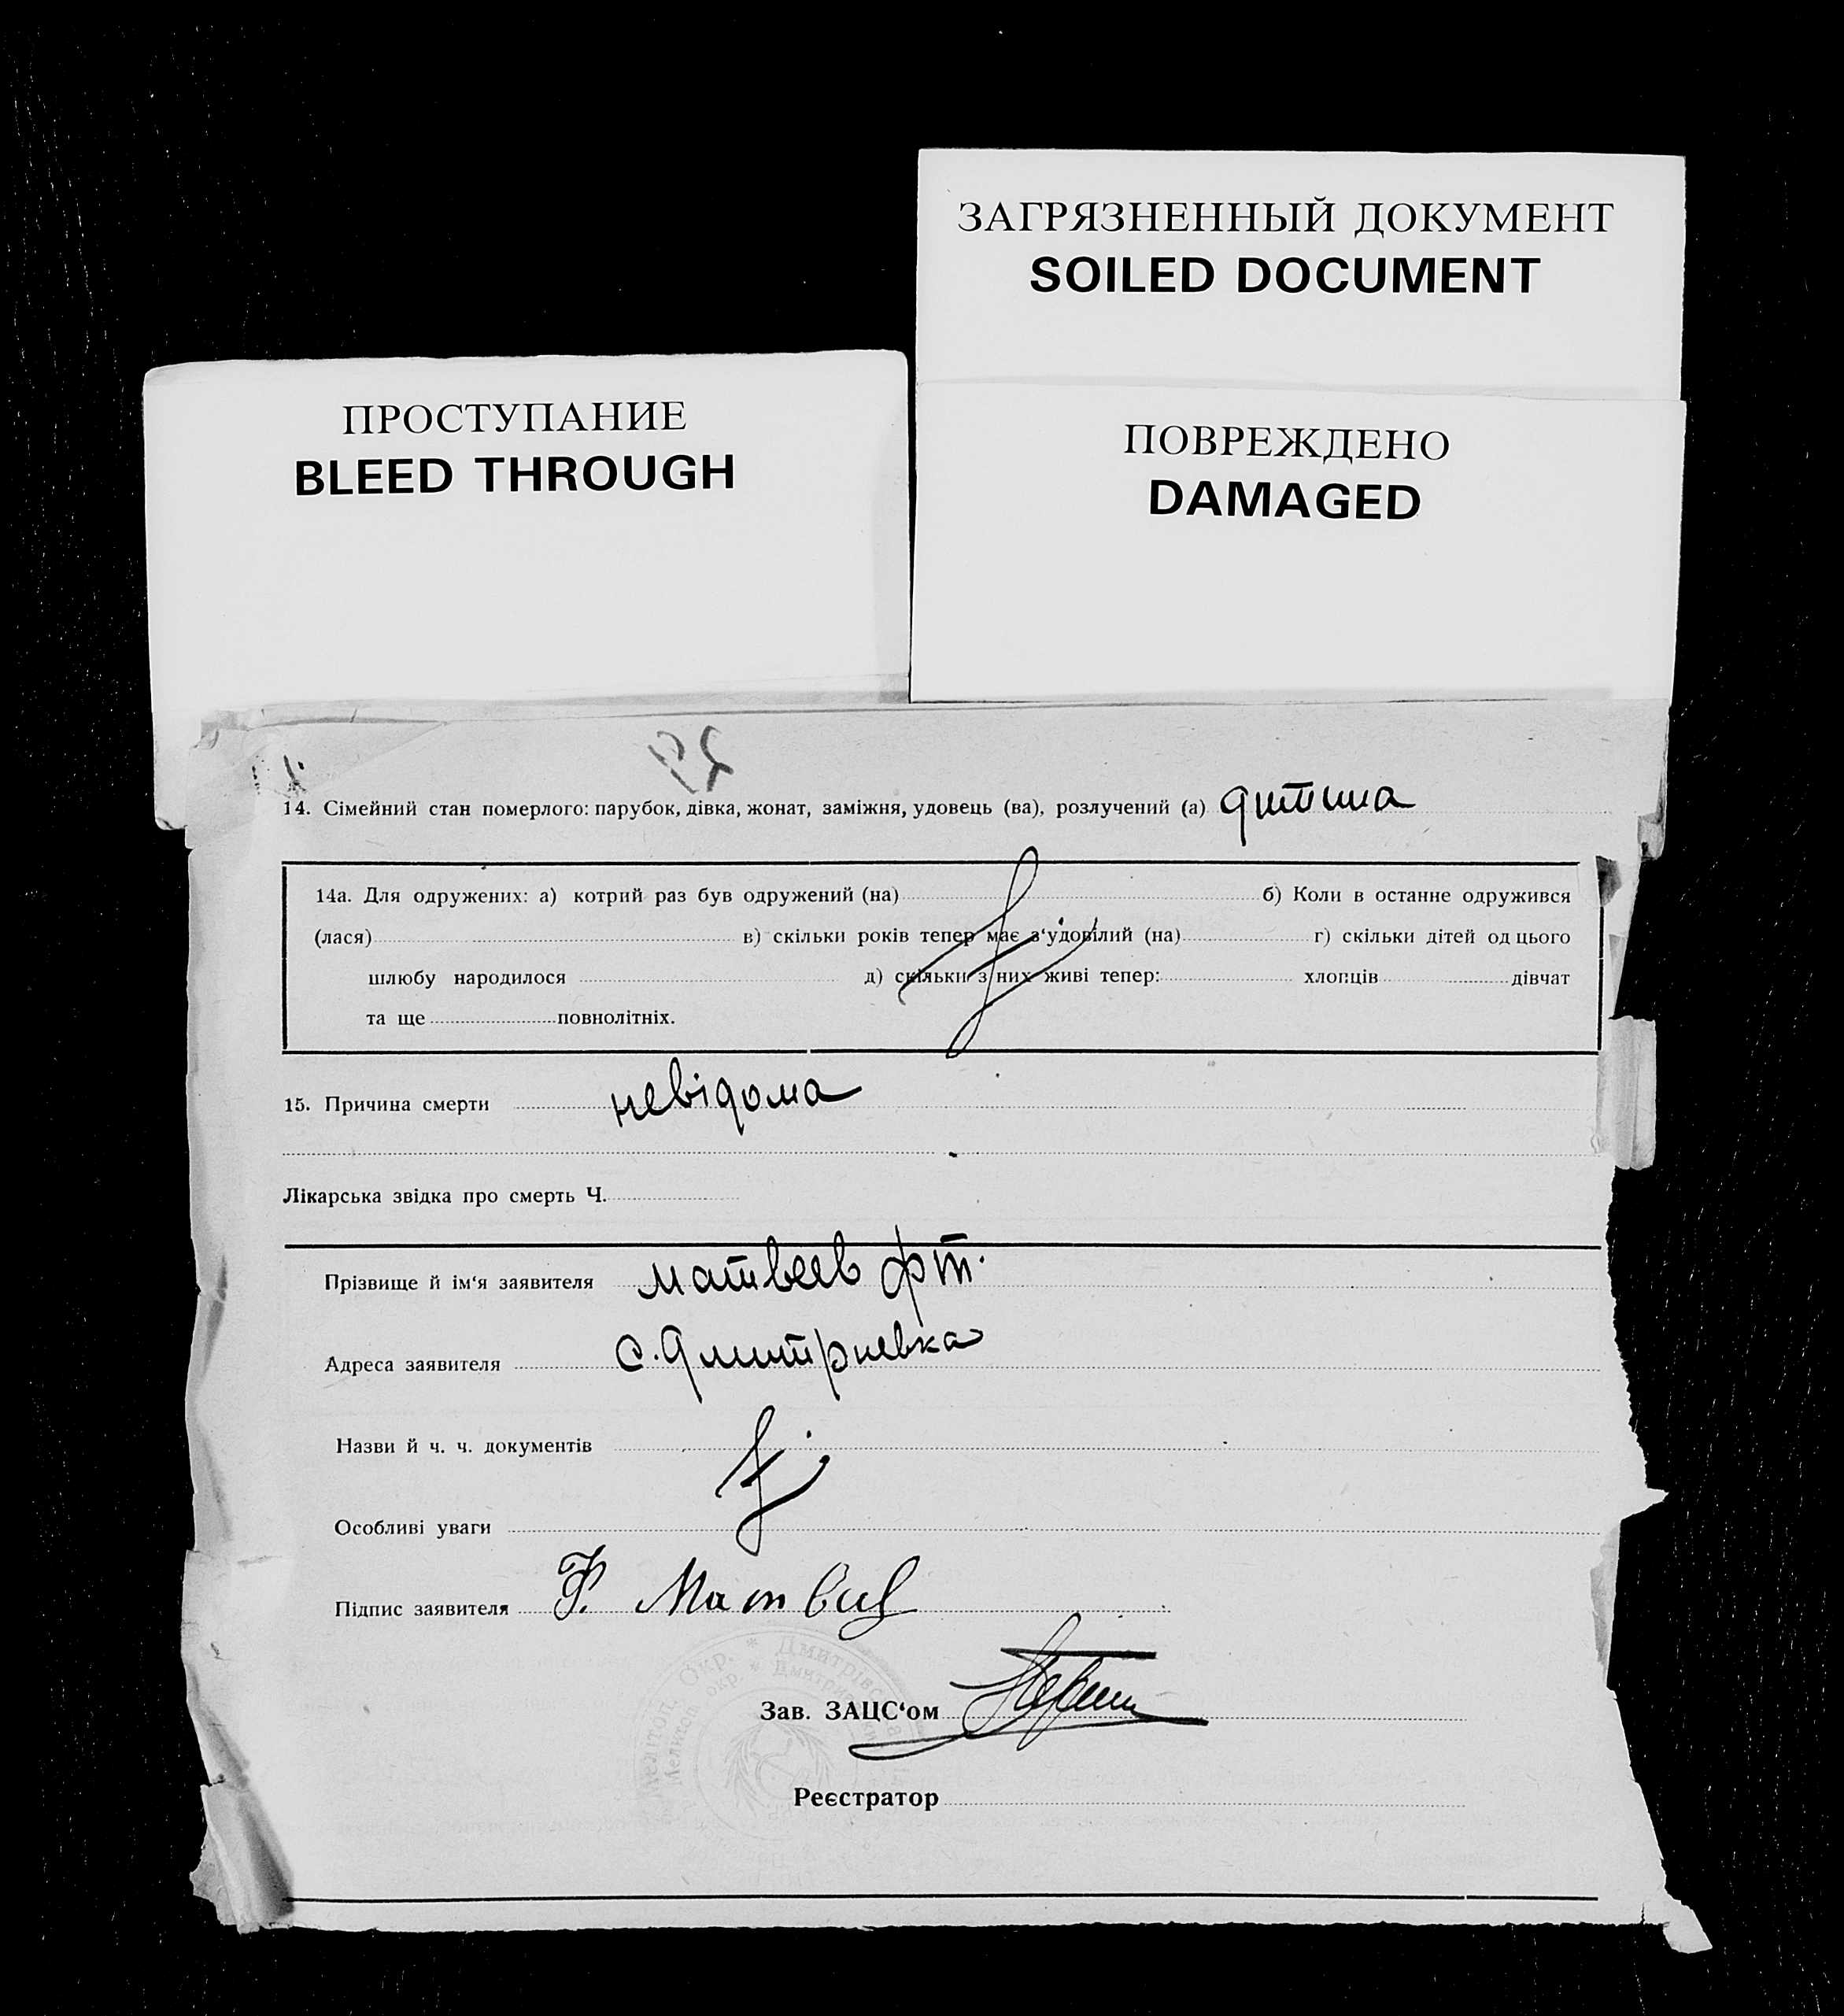 ЗАГРЯЗНЕННЫЙ ДОКУМЕНТ
SOILED DOCUMENT
ПРОСТУПАНИЕ
BLEED THROUGH
ПОВРЕЖДЕНО
DAMAGED
14. Сімейний стан померлого: парубок, дівка, жонат, заміжня, удовець (ва), розлучений (а) дитина
14а. Для одружених: а) котрий раз був одружений (на) б) Коли в останне одружився
(лася) в) скільки років тепер має з‘удовілий (на) г) скільки дітей од цього
шлюбу народилося д) скільки з них живі тепер: хлопців дівчат
та ще повнолітніх.
15. Причина смерти невідома
Лікарська звідка про смерть Ч.
Прізвище й ім‘я заявителя Матвеев Фт.
Адреса заявителя с. Дмитриевка
Назви й ч. ч. документів
Особливі уваги
Підпис заявителя Ф. Матвеев
Мелітоп. Окр. * Дмитрівська
Мелитоп окр. *
Зав. ЗАЦС‘ом
Реєстратор